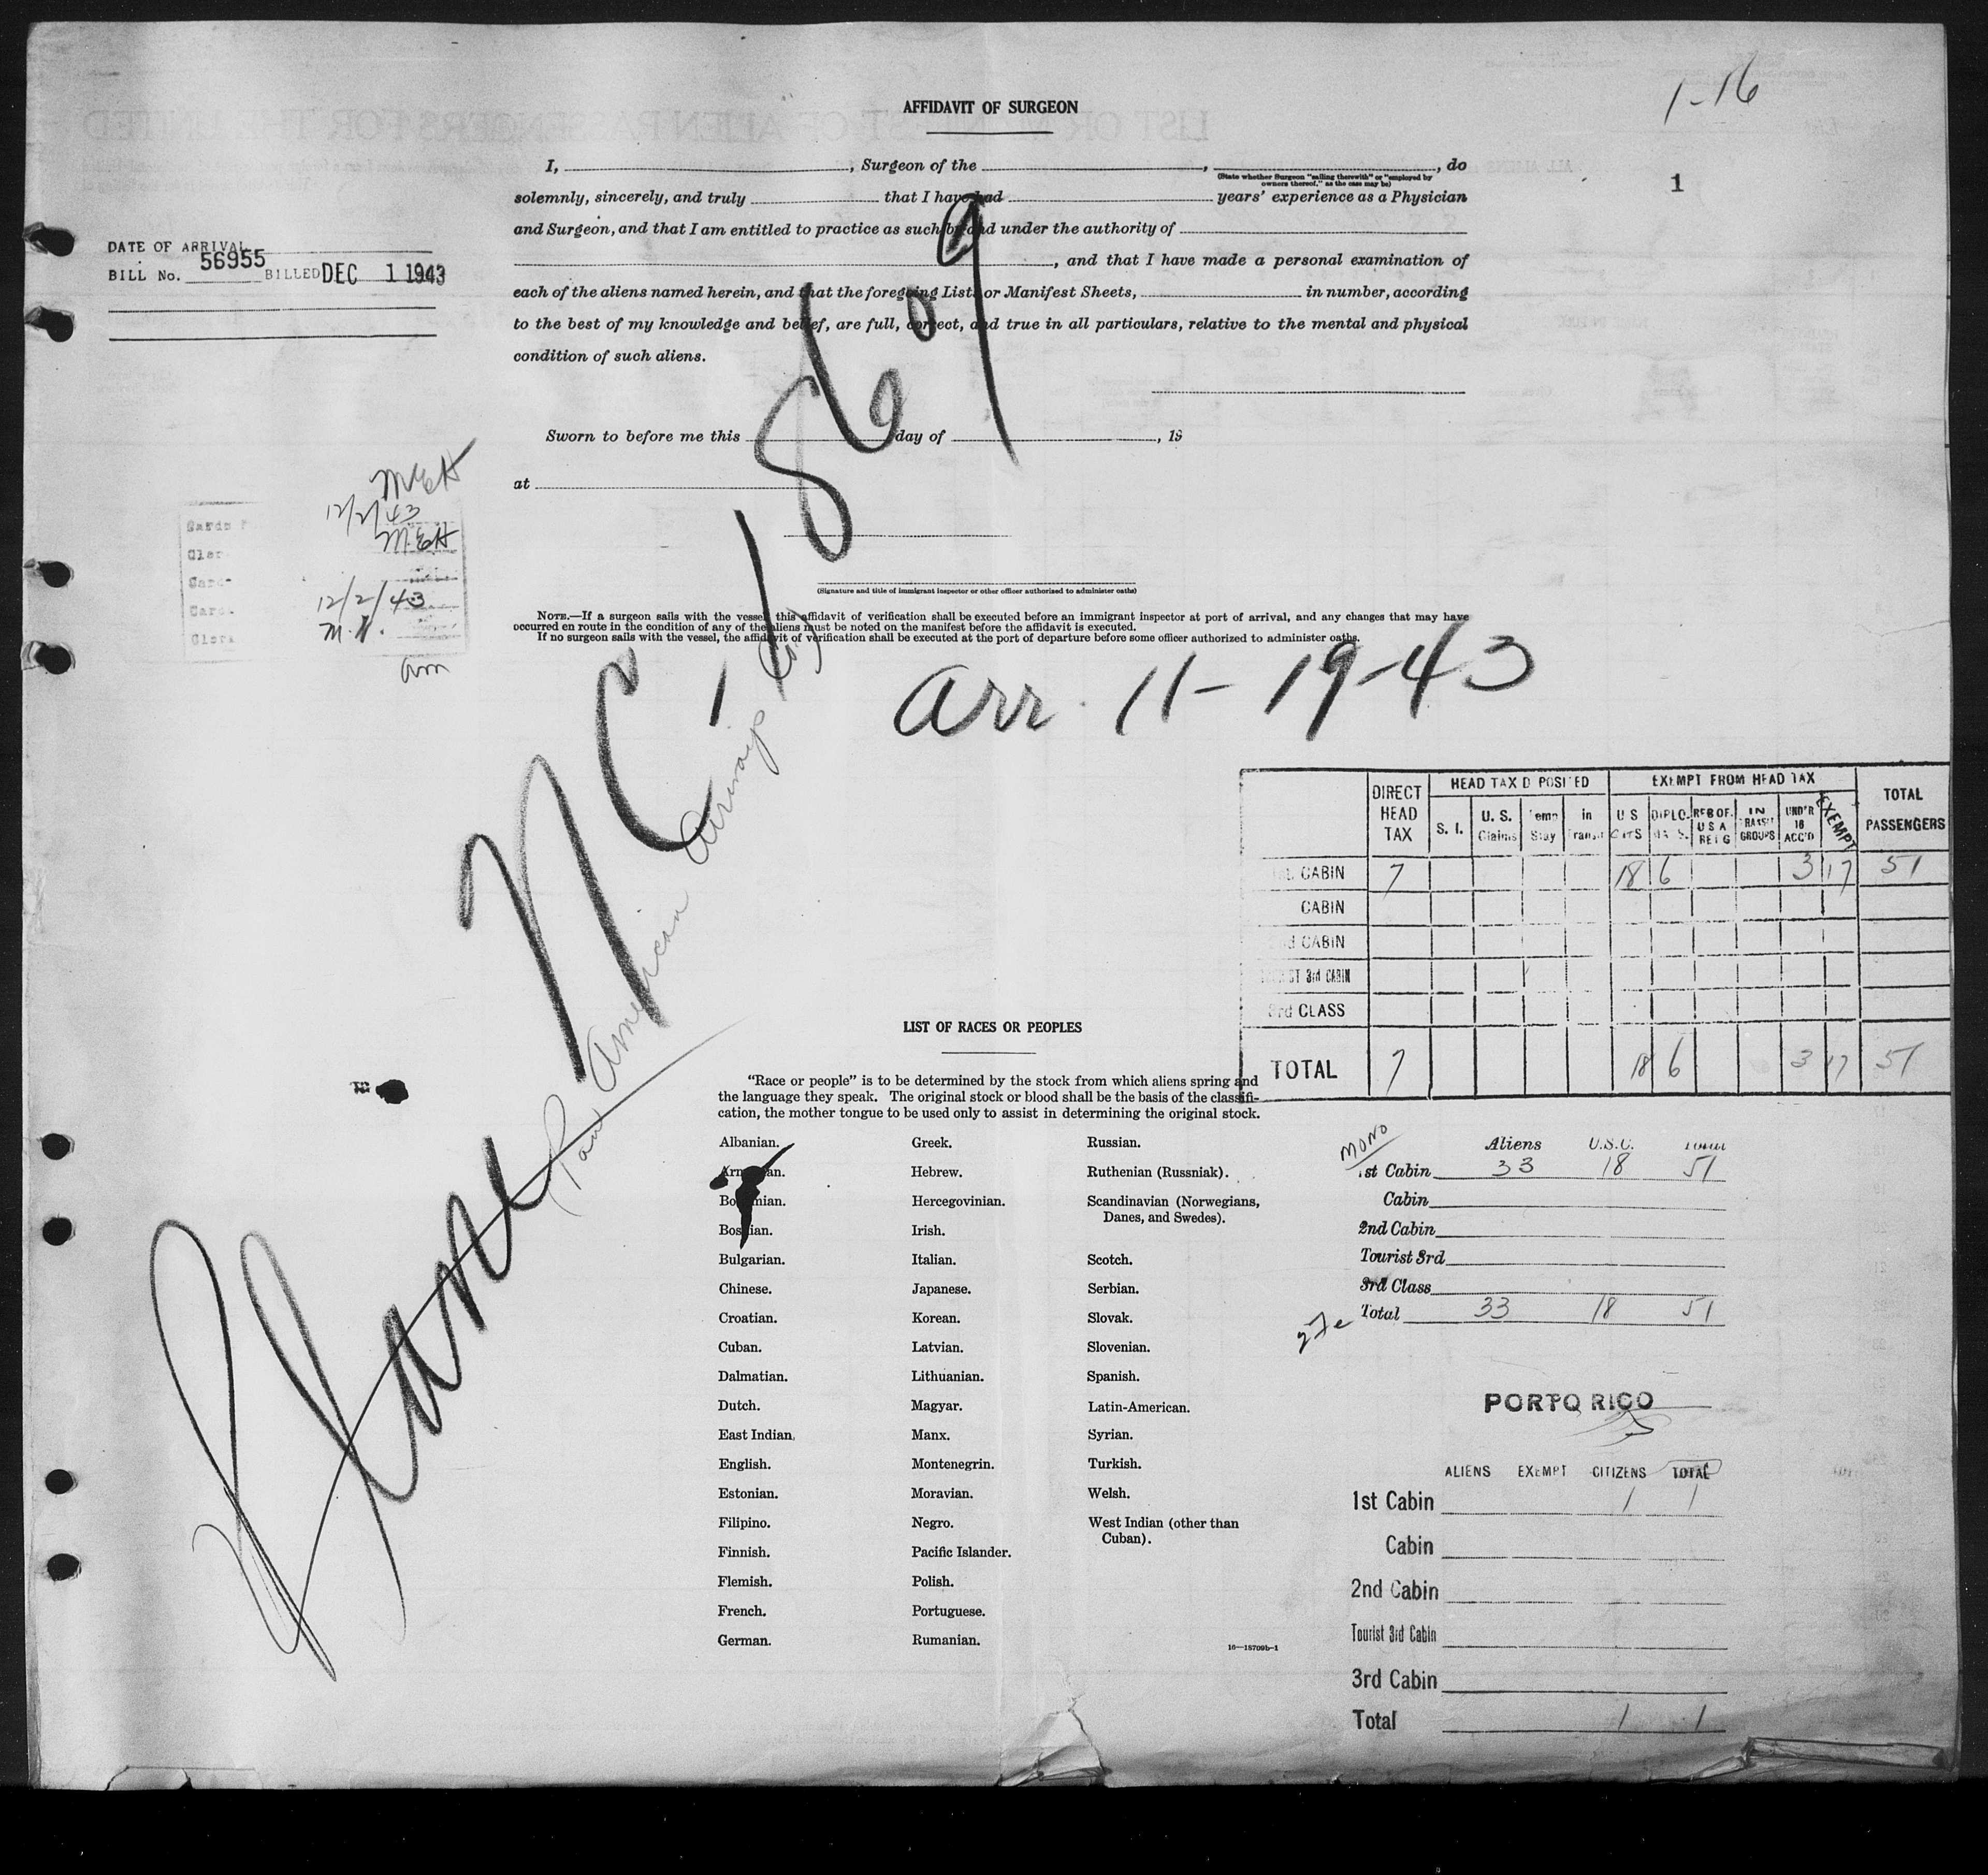 1-16
AFFIDAVIT OF SURGEON
1
I, , Surgeon of the , , do
(State whether Surgeon "sailing therewith" or "employed by
owners thereof," as the case may be)
solemnly, sincerely, and truly that I have had years' experience as a Physician
and Surgeon, and that I am entitled to practice as such by and under the authority of
, and that I have made a personal examination of
each of the aliens named herein, and that the foregoing Lists or Manifest Sheets, in number, according
to the best of my knowledge and belief, are full, correct, and true in all particulars, relative to the mental and physical
condition of such aliens.
Sworn to before me this day of , 19
at
(Signature and title of immigrant inspector or other officer authorized to administer oaths)
NOTE.—If a surgeon sails with the vessel, this affidavit of verification shall be executed before an immigrant inspector at port of arrival, and any changes that may have
occurred en route in the condition of any of the aliens must be noted on the manifest before the affidavit is executed.
If no surgeon sails with the vessel, the affidavit of verification shall be executed at the port of departure before some officer authorized to administer oaths.
DATE OF ARRIVAL
BILL No. 56955 BILLED DEC 1 1943
MEH
12/2/43
M.E.H
12/2/43
M.H.
am
Plane NC-18609
Pan American Airways
arr. 11-19-43
DIRECT HEAD TAX
HEAD TAX D POSITED
S. I.
U. S. Claims
Temp Stay
in Transit
EXEMPT FROM HEAD TAX
U S CITS
DIPLO.
REB OF. U S A REI G
IN TRANSIT GROUPS
UND'R 16 ACC'D
EXEMPT
TOTAL PASSENGERS
CABIN 7 18 6 3 17 51
CABIN
CABIN
3rd CABIN
3rd CLASS
TOTAL 7 18 6 3 17 51
LIST OF RACES OR PEOPLES
"Race or people" is to be determined by the stock from which aliens spring and
the language they speak. The original stock or blood shall be the basis of the classifi-
cation, the mother tongue to be used only to assist in determining the original stock.
Albanian.
Armenian.
Bohemian.
Bosnian.
Bulgarian.
Chinese.
Croatian.
Cuban.
Dalmatian.
Dutch.
East Indian.
English.
Estonian.
Filipino.
Finnish.
Flemish.
French.
German.
Greek.
Hebrew.
Hercegovinian.
Irish.
Italian.
Japanese.
Korean.
Latvian.
Lithuanian.
Magyar.
Manx.
Montenegrin.
Moravian.
Negro.
Pacific Islander.
Polish.
Portuguese.
Rumanian.
Russian.
Ruthenian (Russniak).
Scandinavian (Norwegians,
Danes, and Swedes).
Scotch.
Serbian.
Slovak.
Slovenian.
Spanish.
Latin-American.
Syrian.
Turkish.
Welsh.
West Indian (other than
Cuban).
16—18709b-1
MONO
Aliens U.S.C. Total
1st Cabin 33 18 51
Cabin
2nd Cabin
Tourist 3rd
3rd Class
Total 33 18 51
PORTO RICO
ALIENS EXEMPT CITIZENS TOTAL
1st Cabin 1 1
Cabin
2nd Cabin
Tourist 3rd Cabin
3rd Cabin
Total 1 1